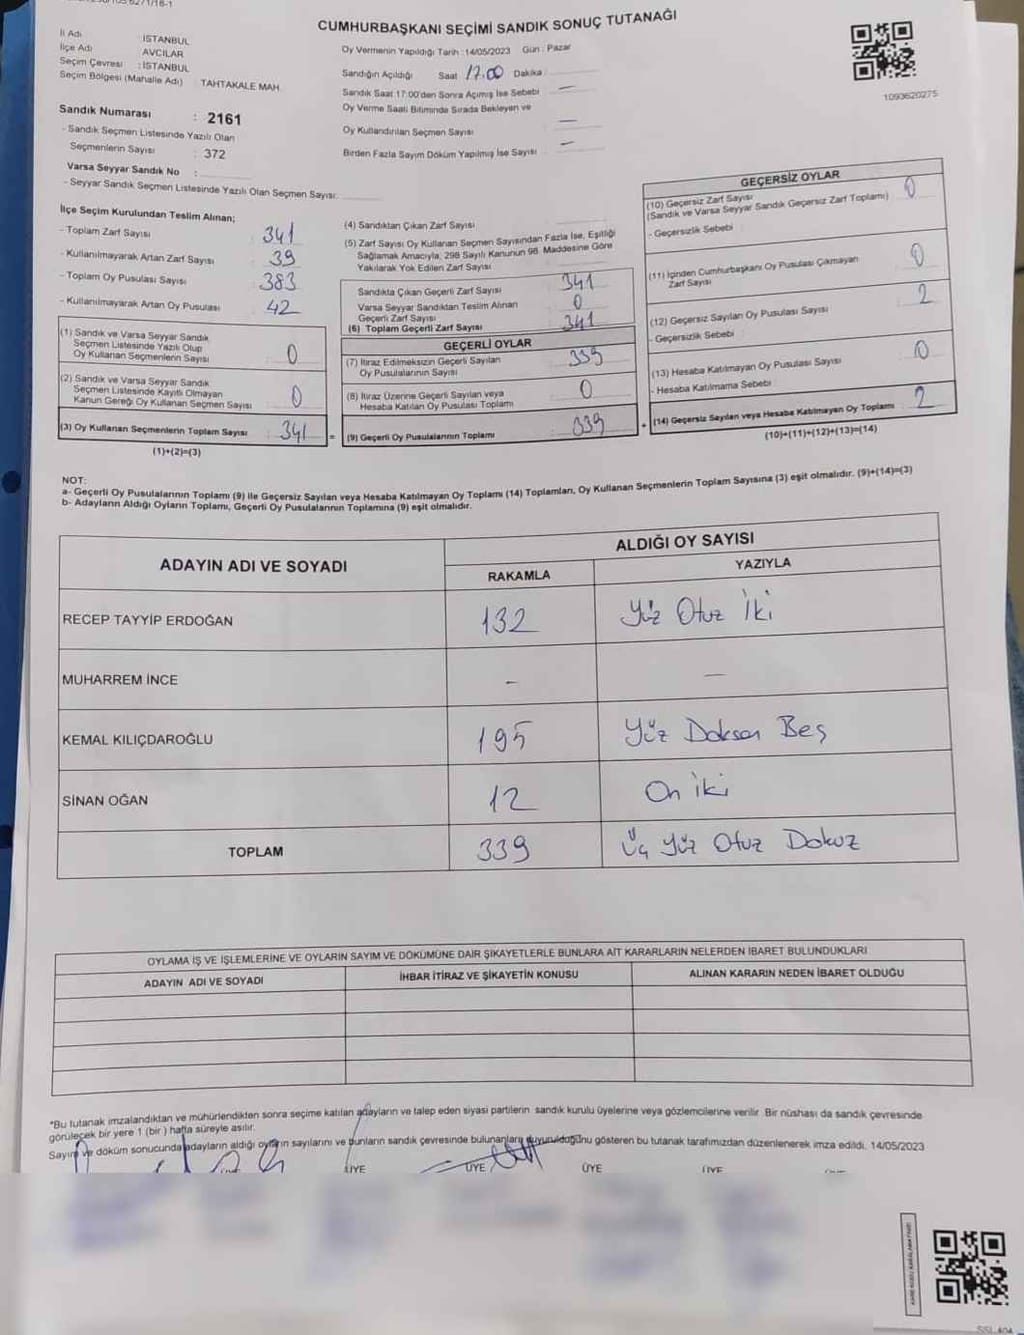 CUMHURBAŞKANI SEÇİMİ SANDIK SONUÇ TUTANAĞI
İl Adı : İSTANBUL
İlçe Adı AVCILAR
Seçim Çevresi : İSTANBUL
Seçim Bölgesi (Mahalle Adı) : TAHTAKALE MAH.
Oy Vermenin Yapıldığı Tarih :14/05/2023 Gün : Pazar
Sandığın Açıldığı Saat 17.00 Dakika :
Sandık Saat 17:00'den Sonra Açımış İse Sebebi : —
Oy Verme Saati Bitiminde Sırada Bekleyen ve
Oy Kullandırılan Seçmen Sayısı : —
Birden Fazla Sayım Döküm Yapılmış İse Sayısı : —
1093620275
Sandık Numarası : 2161
- Sandık Seçmen Listesinde Yazılı Olan
Seçmenlerin Sayısı : 372
Varsa Seyyar Sandık No :
- Seyyar Sandık Seçmen Listesinde Yazılı Olan Seçmen Sayısı:
İlçe Seçim Kurulundan Teslim Alınan;
- Toplam Zarf Sayısı : 341
- Kullanılmayarak Artan Zarf Sayısı : 39
- Toplam Oy Pusulası Sayısı : 383
- Kullanılmayarak Artan Oy Pusulası : 42
(1) Sandık ve Varsa Seyyar Sandık
Seçmen Listesinde Yazılı Olup
Oy Kullanan Seçmenlerin Sayısı : 0
(2) Sandık ve Varsa Seyyar Sandık
Seçmen Listesinde Kayıtlı Olmayan
Kanun Gereği Oy Kullanan Seçmen Sayısı : 0
(3) Oy Kullanan Seçmenlerin Toplam Sayısı : 341
(1)+(2)=(3)
(4) Sandıktan Çıkan Zarf Sayısı :
(5) Zarf Sayısı Oy Kullanan Seçmen Sayısından Fazla İse, Eşitliği
Sağlamak Amacıyla, 298 Sayılı Kanunun 98. Maddesine Göre
Yakılarak Yok Edilen Zarf Sayısı :
Sandıkta Çıkan Geçerli Zarf Sayısı : 341
Varsa Seyyar Sandıktan Teslim Alınan
Geçerli Zarf Sayısı : 0
(6) Toplam Geçerli Zarf Sayısı : 341
GEÇERLİ OYLAR
(7) İtiraz Edilmeksizin Geçerli Sayılan
Oy Pusulalarının Sayısı : 339
(8) İtiraz Üzerine Geçerli Sayılan veya
Hesaba Katılan Oy Pusulası Toplamı : 0
= (9) Geçerli Oy Pusulalarının Toplamı : 339
GEÇERSİZ OYLAR
(10) Geçersiz Zarf Sayısı
(Sandık ve Varsa Seyyar Sandık Geçersiz Zarf Toplamı) : 0
- Geçersizlik Sebebi :
(11) İçinden Cumhurbaşkanı Oy Pusulası Çıkmayan
Zarf Sayısı : 0
(12) Geçersiz Sayılan Oy Pusulası Sayısı : 2
- Geçersizlik Sebebi :
(13) Hesaba Katılmayan Oy Pusulası Sayısı : 0
- Hesaba Katılmama Sebebi :
+ (14) Geçersiz Sayılan veya Hesaba Katılmayan Oy Toplamı : 2
(10)+(11)+(12)+(13)=(14)
NOT:
a- Geçerli Oy Pusulalarının Toplamı (9) ile Geçersiz Sayılan veya Hesaba Katılmayan Oy Toplamı (14) Toplamları, Oy Kullanan Seçmenlerin Toplam Sayısına (3) eşit olmalıdır. (9)+(14)=(3)
b- Adayların Aldığı Oyların Toplamı, Geçerli Oy Pusulalarının Toplamına (9) eşit olmalıdır.
ADAYIN ADI VE SOYADI
ALDIĞI OY SAYISI
RAKAMLA YAZIYLA
RECEP TAYYİP ERDOĞAN 132 Yüz Otuz İki
MUHARREM İNCE – —
KEMAL KILIÇDAROĞLU 195 Yüz Doksan Beş
SİNAN OĞAN 12 On iki
TOPLAM 339 Üç Yüz Otuz Dokuz
OYLAMA İŞ VE İŞLEMLERİNE VE OYLARIN SAYIM VE DÖKÜMÜNE DAİR ŞİKAYETLERLE BUNLARA AİT KARARLARIN NELERDEN İBARET BULUNDUKLARI
ADAYIN ADI VE SOYADI İHBAR İTİRAZ VE ŞİKAYETİN KONUSU ALINAN KARARIN NEDEN İBARET OLDUĞU
*Bu tutanak imzalandıktan ve mühürlendikten sonra seçime katılan adayların ve talep eden siyasi partilerin sandık kurulu üyelerine veya gözlemcilerine verilir. Bir nüshası da sandık çevresinde
görülecek bir yere 1 (bir) hafta süreyle asılır.
Sayım ve döküm sonucunda adayların aldığı oyların sayılarını ve bunların sandık çevresinde bulunanlara duyurulduğunu gösteren bu tutanak tarafımızdan düzenlenerek imza edildi. 14/05/2023
ÜYE ÜYE ÜYE ÜYE